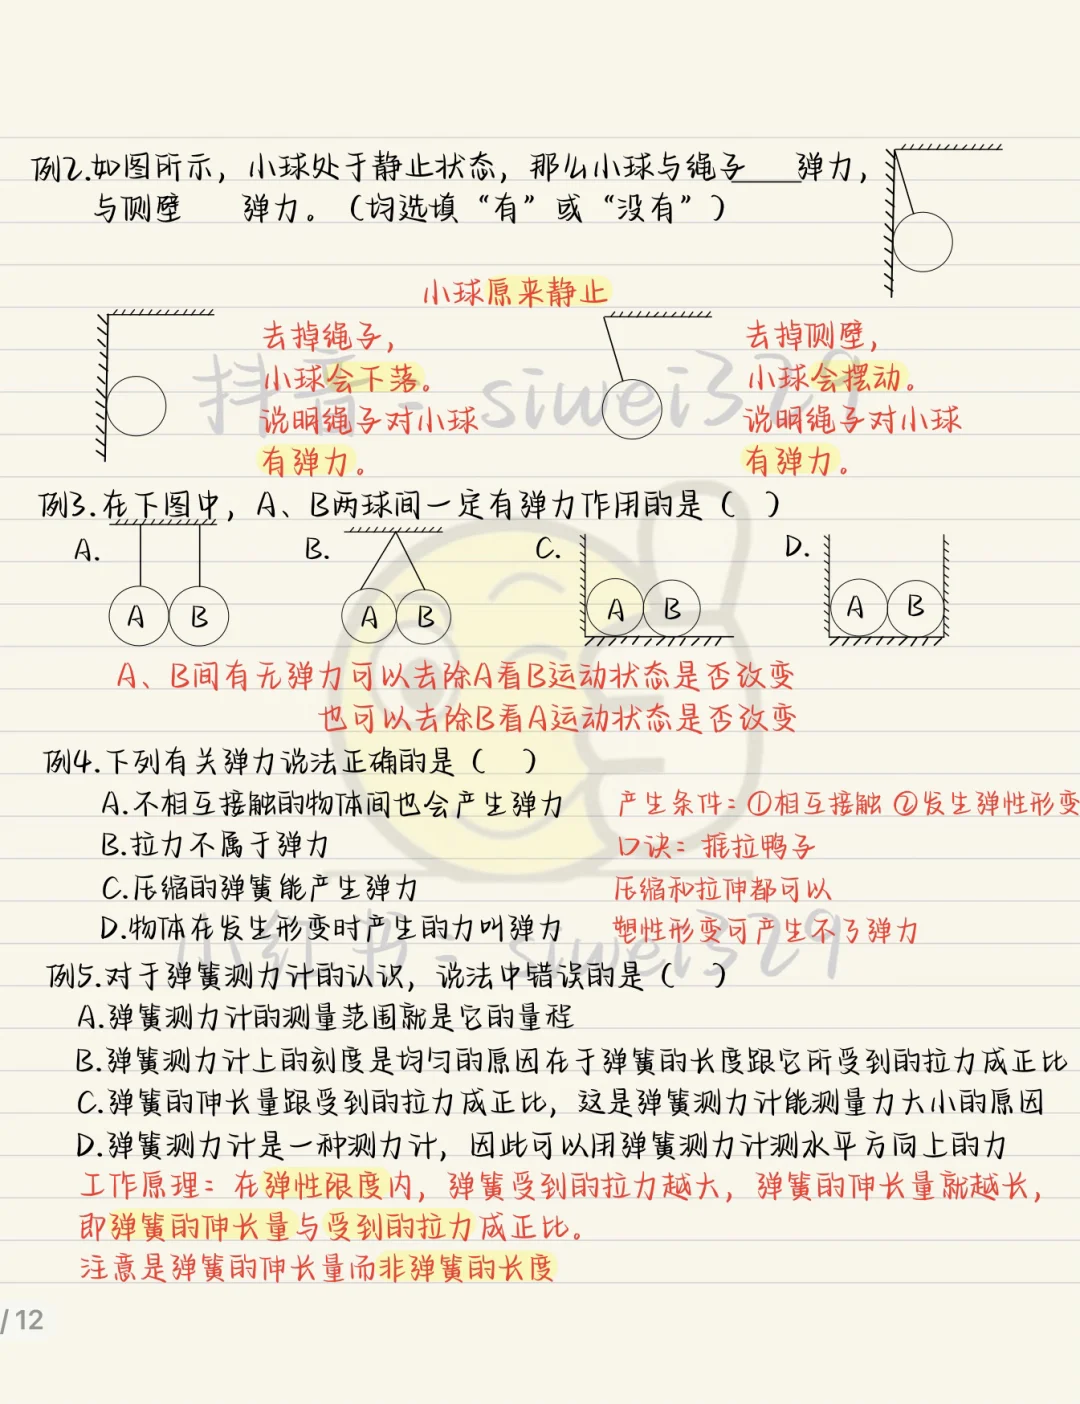 例2.如图所示，小球处于静止状态，那么小球与绳子____弹力，
与侧壁 弹力。（均选填“有”或“没有”）
小球原来静止
去掉绳子，
小球会下落。
说明绳子对小球
有弹力。
去掉侧壁，
小球会摆动。
说明绳子对小球
有弹力。
抖音：siwei329
例3.在下图中，A、B两球间一定有弹力作用的是（ ）
A. B. C. D.
A B A B A B A B
A、B间有无弹力可以去除A看B运动状态是否改变
也可以去除B看A运动状态是否改变
例4.下列有关弹力说法正确的是（ ）
A.不相互接触的物体间也会产生弹力 产生条件：①相互接触 ②发生弹性形变
B.拉力不属于弹力 口诀：摇拉鸭子
C.压缩的弹簧能产生弹力 压缩和拉伸都可以
D.物体在发生形变时产生的力叫弹力 塑性形变可产生不了弹力
小红书：siwei329
例5.对于弹簧测力计的认识，说法中错误的是（ ）
A.弹簧测力计的测量范围就是它的量程
B.弹簧测力计上的刻度是均匀的原因在于弹簧的长度跟它所受到的拉力成正比
C.弹簧的伸长量跟受到的拉力成正比，这是弹簧测力计能测量力大小的原因
D.弹簧测力计是一种测力计，因此可以用弹簧测力计测水平方向上的力
工作原理：在弹性限度内，弹簧受到的拉力越大，弹簧的伸长量就越长，
即弹簧的伸长量与受到的拉力成正比。
注意是弹簧的伸长量而非弹簧的长度
/ 12